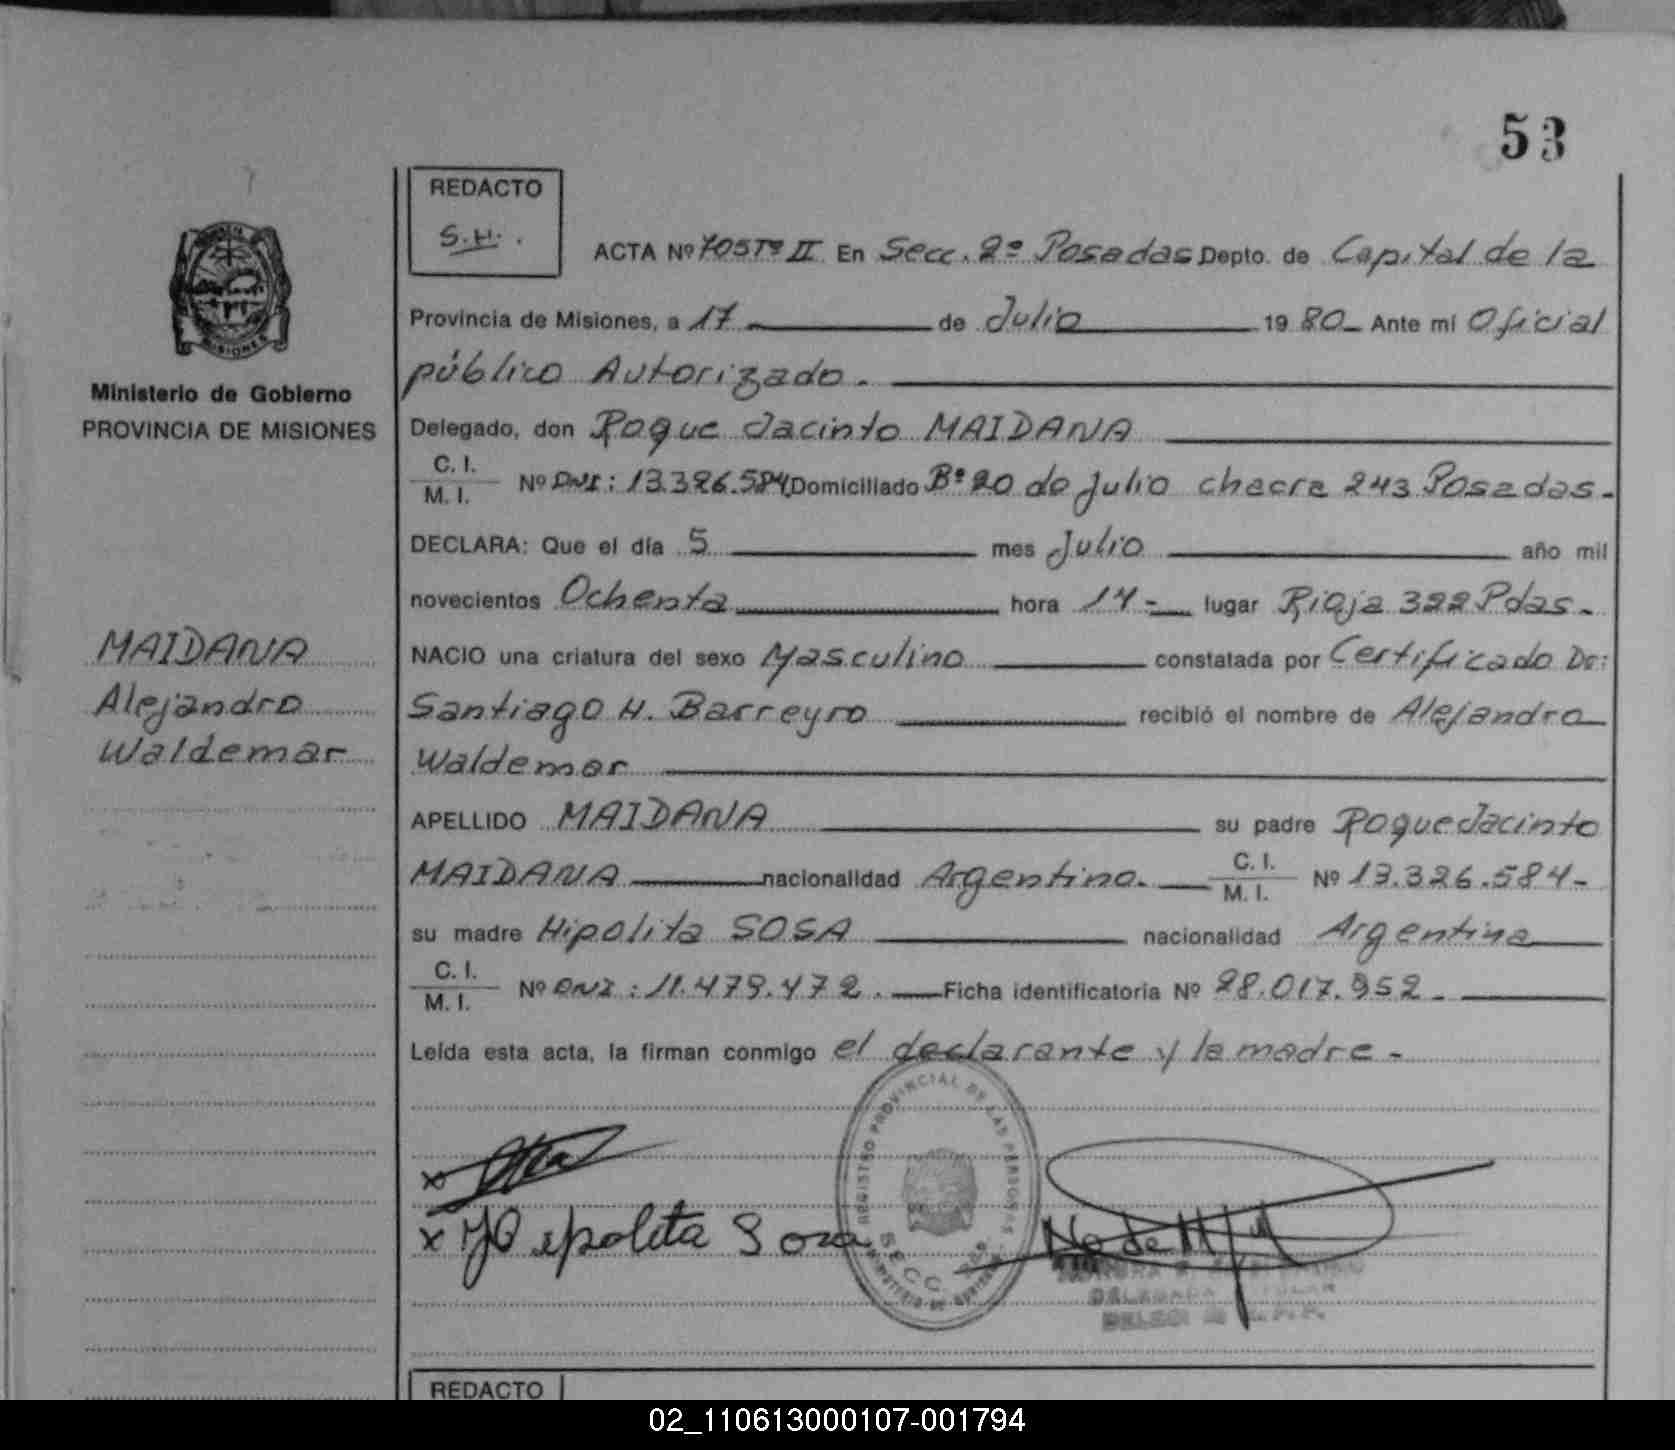 53
REDACTO
S.H.
ACTA Nº 705 Tº II En Secc. 2º Posadas Depto. de Capital de la
Provincia de Misiones, a 17 de Julio 19 80 Ante mi Oficial
público Autorizado.
Delegado, don Roque Jacinto MAIDANA
C. I.
M. I. Nº DNI: 13.326.584 Domiciliado Bº 20 de Julio chacra 243 Posadas.
DECLARA: Que el día 5 mes Julio año mil
novecientos Ochenta hora 14 lugar Rioja 322 Pdas.
NACIO una criatura del sexo Masculino constatada por Certificado Dr:
Santiago H. Barreyro recibió el nombre de Alejandro
Waldemar
APELLIDO MAIDANA su padre Roque Jacinto
MAIDANA nacionalidad Argentino. C. I.
M. I. Nº 13.326.584-
su madre Hipolita SOSA nacionalidad Argentina
C. I.
M. I. Nº DNI: 11.479.472. Ficha identificatoria Nº 28.017.952.
Leída esta acta, la firman conmigo el declarante y la madre-
Ministerio de Gobierno
PROVINCIA DE MISIONES
MISIONES
MAIDANA
Alejandro
Waldemar
REGISTRO PROVINCIAL DE LAS PERSONAS
SECC.
x
x Hipolita Sosa
DELEGADA TITULAR
REDACTO
02_110613000107-001794